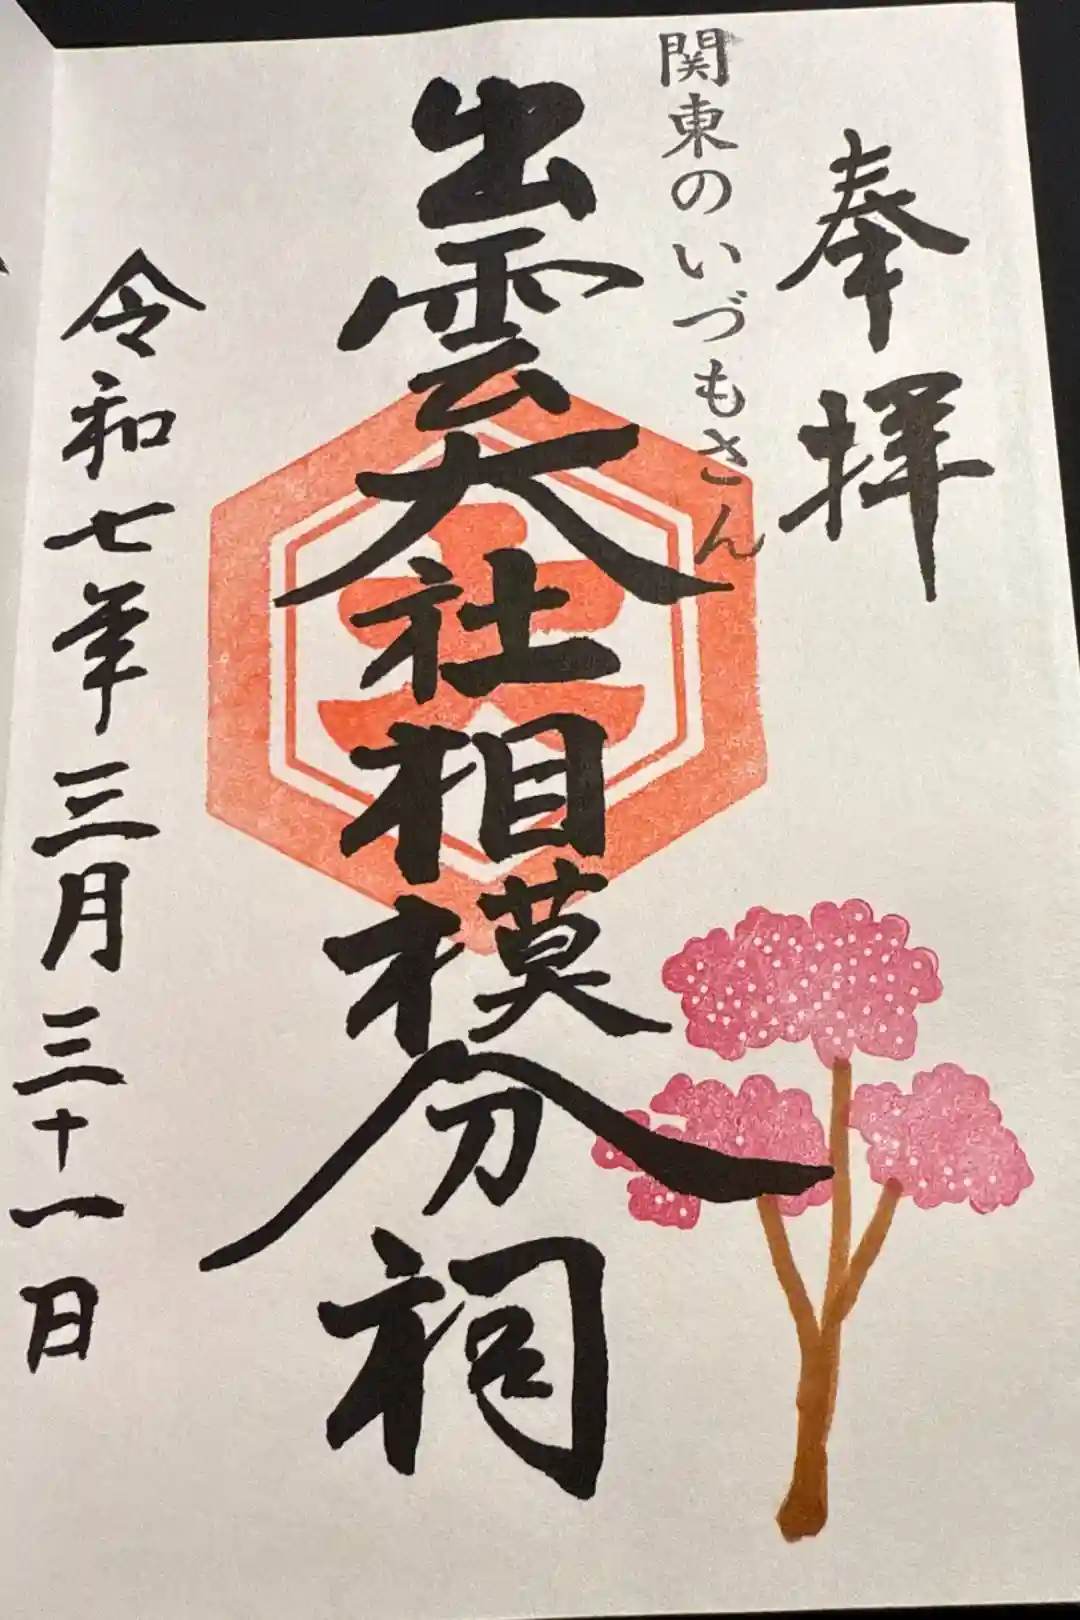 奉拝
関東のいづもさん
出雲大社相模分祠
令和七年三月三十一日